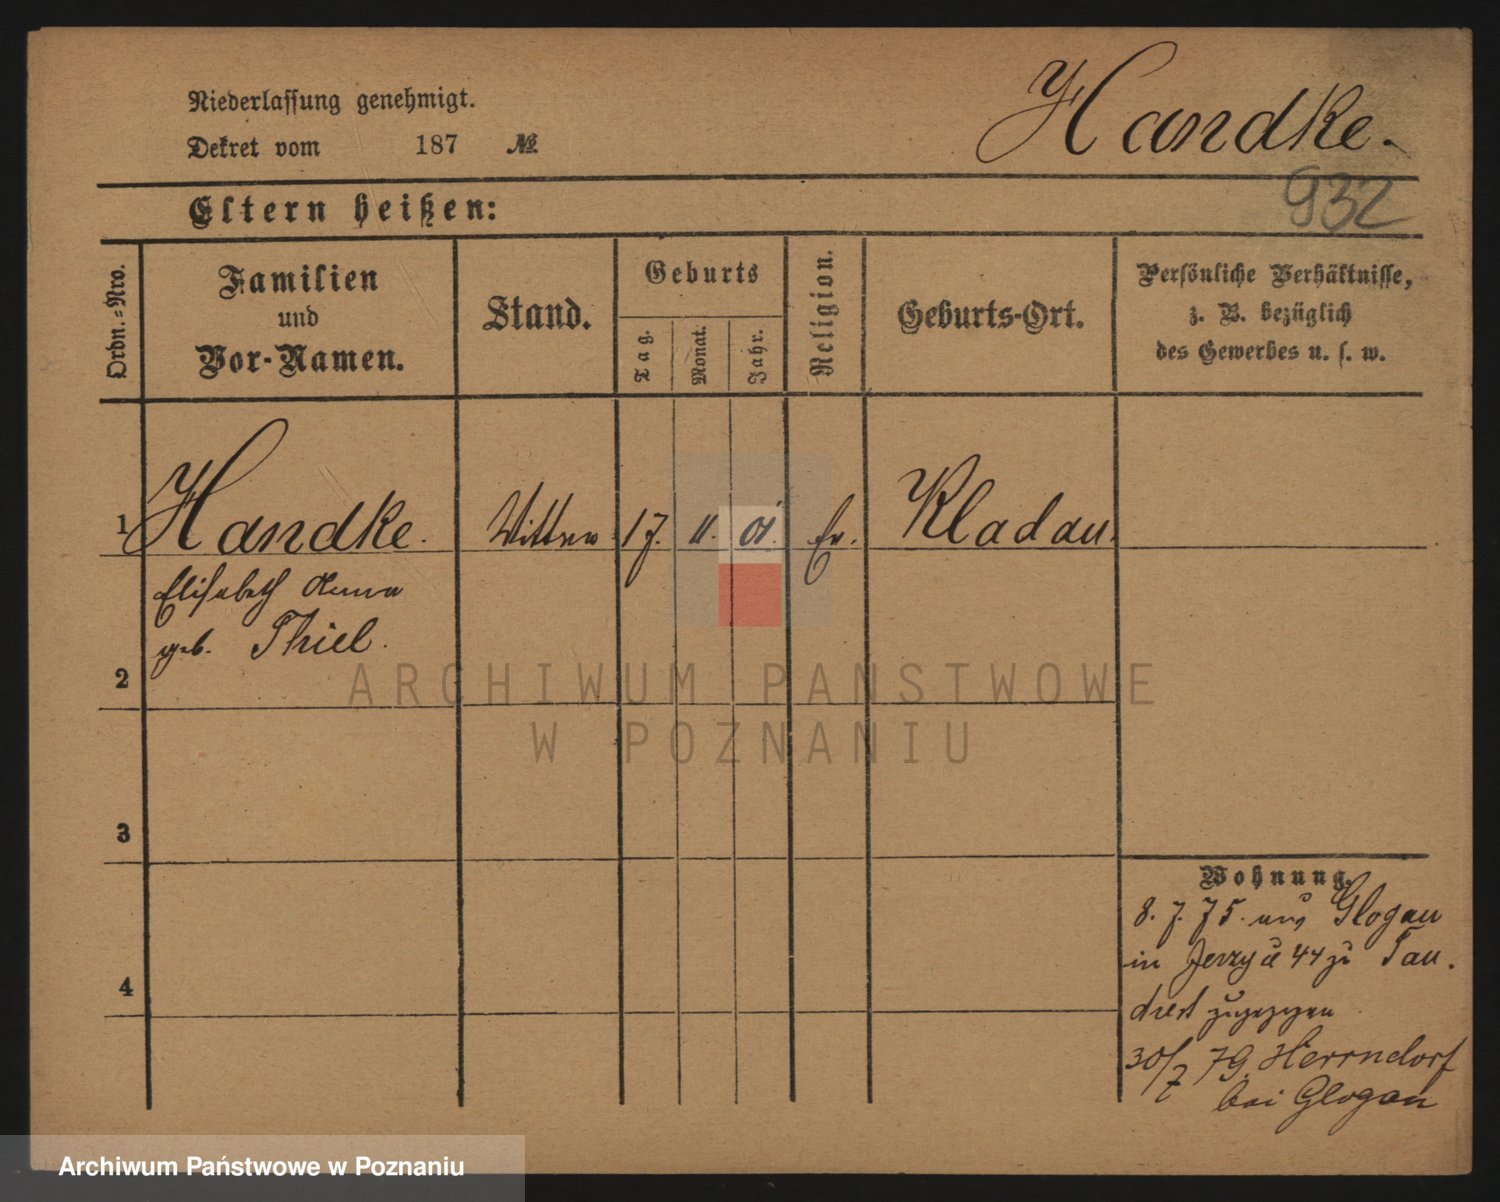 Niederlassung genehmigt.
Dekret vom 187 №
Handke.
932
Eltern heißen:
Ordn.-Nro.
Familien und Vor-Namen.
Stand.
Geburts
Tag.
Monat.
Jahr.
Religion.
Geburts-Ort.
Persönliche Verhältnisse,
z. B. bezüglich
des Gewerbes u. s. w.
1 Handke. Wittwe 17. 11. 01. Ev. Kladau.
Elisabeth Anna
geb. Thiel.
2
3
4
Wohnung.
8. 7. 75. aus Glogau
in Jerzyc 44 zu Tau.
zugezogen
30/7 79. Herrndorf
bei Glogau
ARCHIWUM PAŃSTWOWE
W POZNANIU
Archiwum Państwowe w Poznaniu